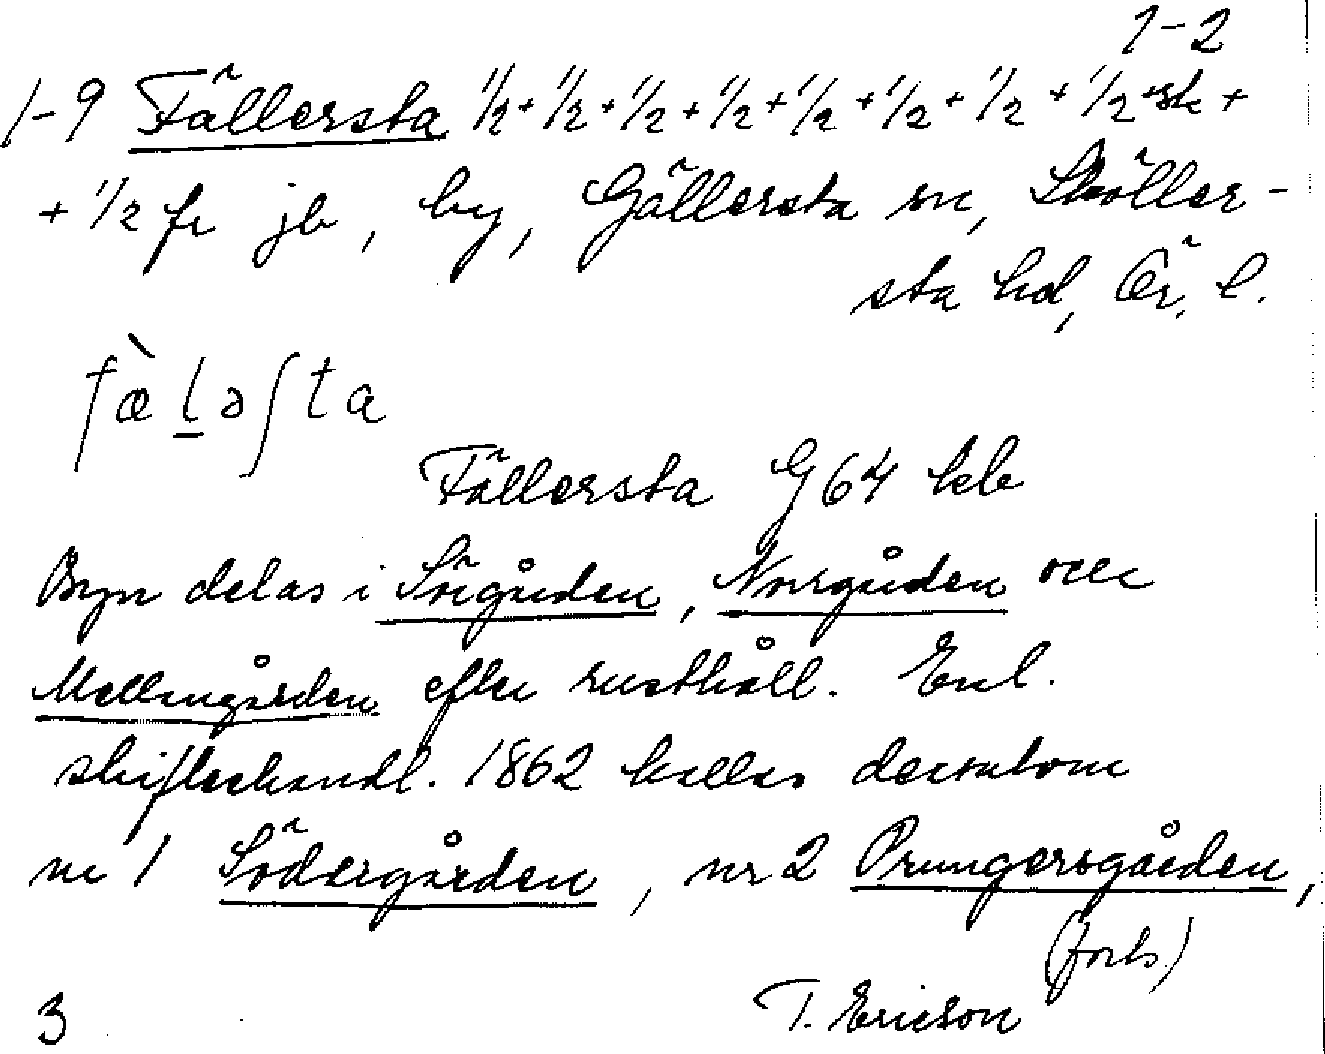 1-2
1-9 Fällersta 1/2 + 1/2 + 1/2 + 1/2 + 1/2 + 1/2 + 1/2 + 1/2 + sk +
+ 1/2 fr jb, by, Gällersta sn, Sköller-
sta hd, Ör. l.
fæ̀ləʃta
Fällersta G 64 kb
Byn delas i Sörgården, Norrgården och
Mellangården efter rusthåll. Enl.
skifteshandl. 1862 kallas dessutom
nr 1 Södergården, nr 2 Prungersgården,
(forts)
3 T. Ericson